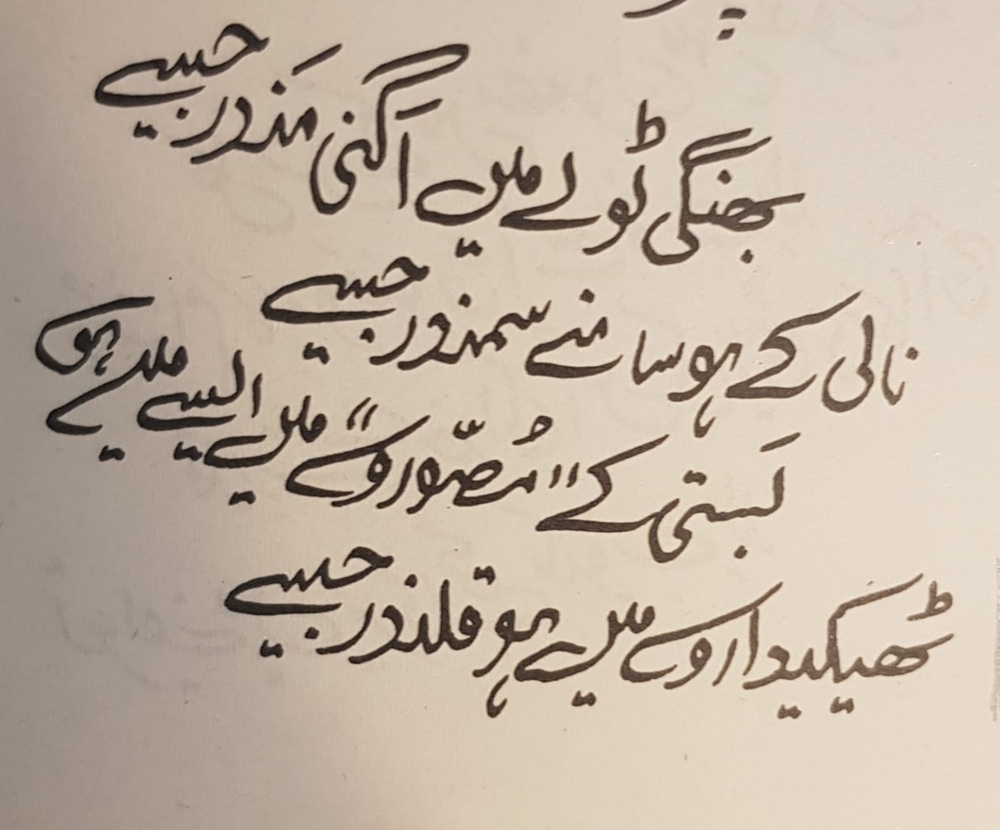 بھنگی ٹولے میں اَگنی مَندر جیسے
نالی کے ہو سامنے سمندر جیسے
بَستی کے "مُصّوروں" میں ایسے ملے ہو
ٹھیکیداروں میں ہو قلندر جیسے